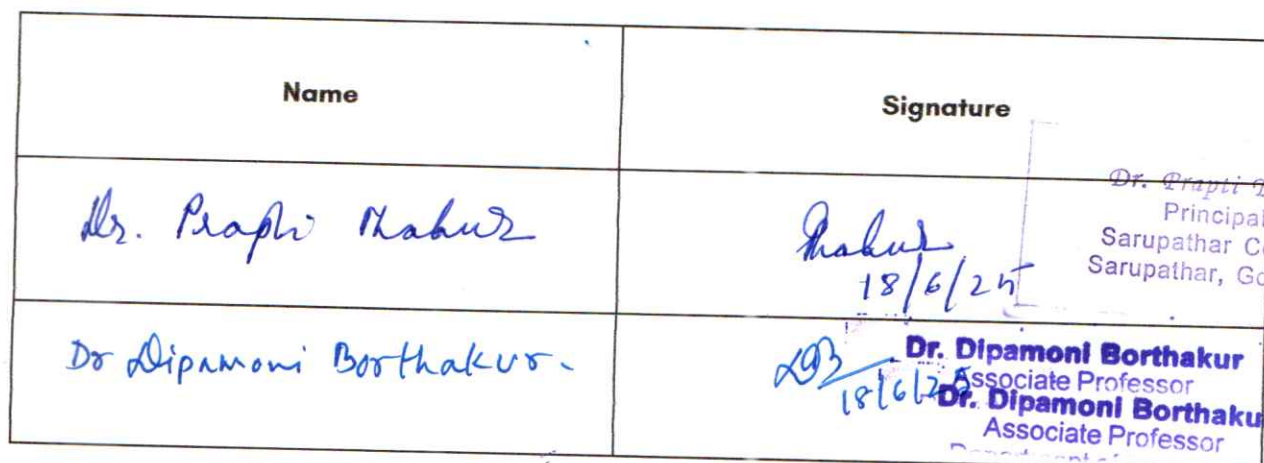 Name
Signature
Dr. Prapti Thakur
Thakur
18/6/25
Dr. Prapti
Principal
Sarupathar
Sarupathar,
Dr Dipamoni Borthakur.
DB
18/6/25
Dr. Dipamoni Borthakur
Associate Professor
Dr. Dipamoni Borthaku
Associate Professor